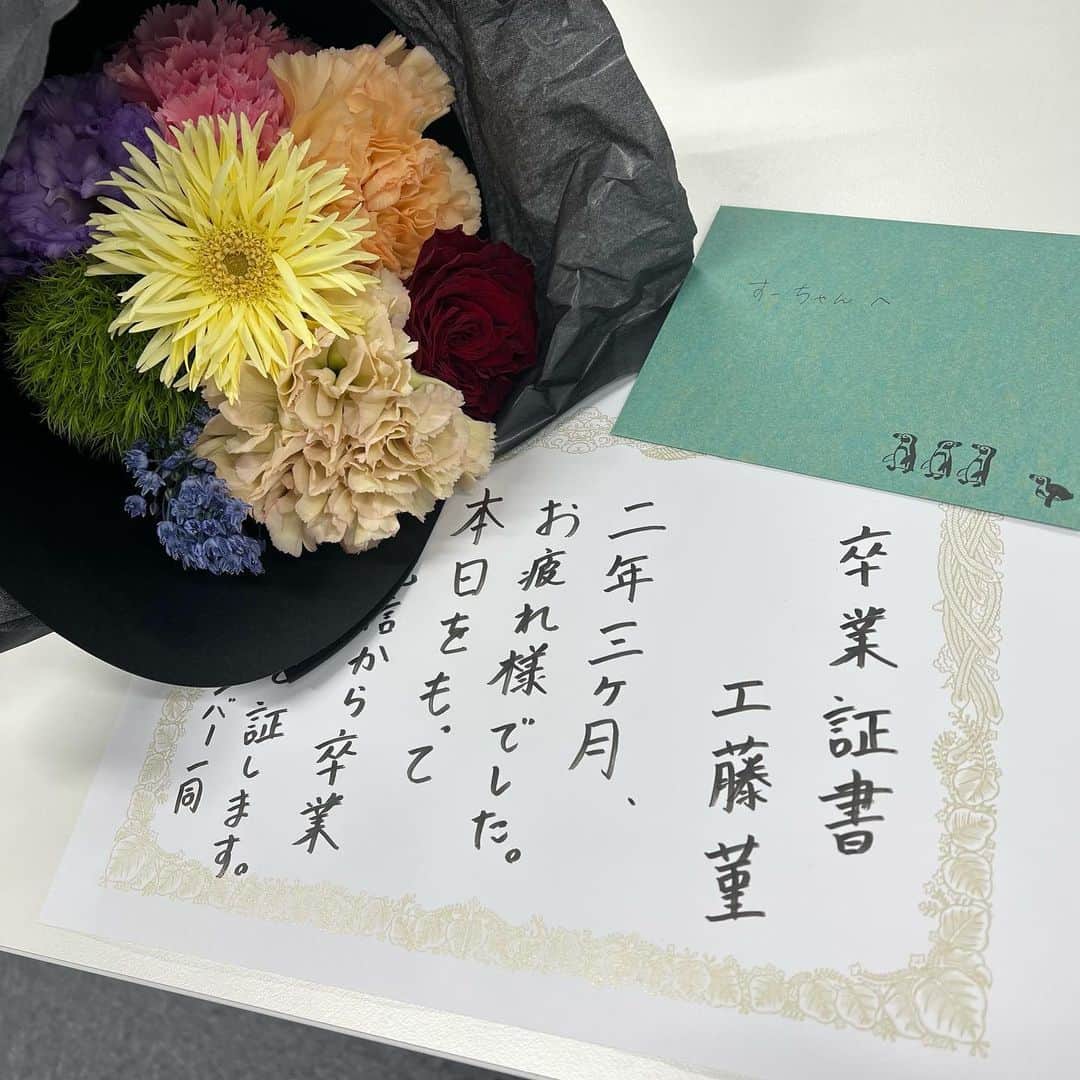 すーちゃんへ
卒業証書
工藤菫
二年三ヶ月、
お疲れ様でした。
本日をもって
信から卒業
証します。
バー一同